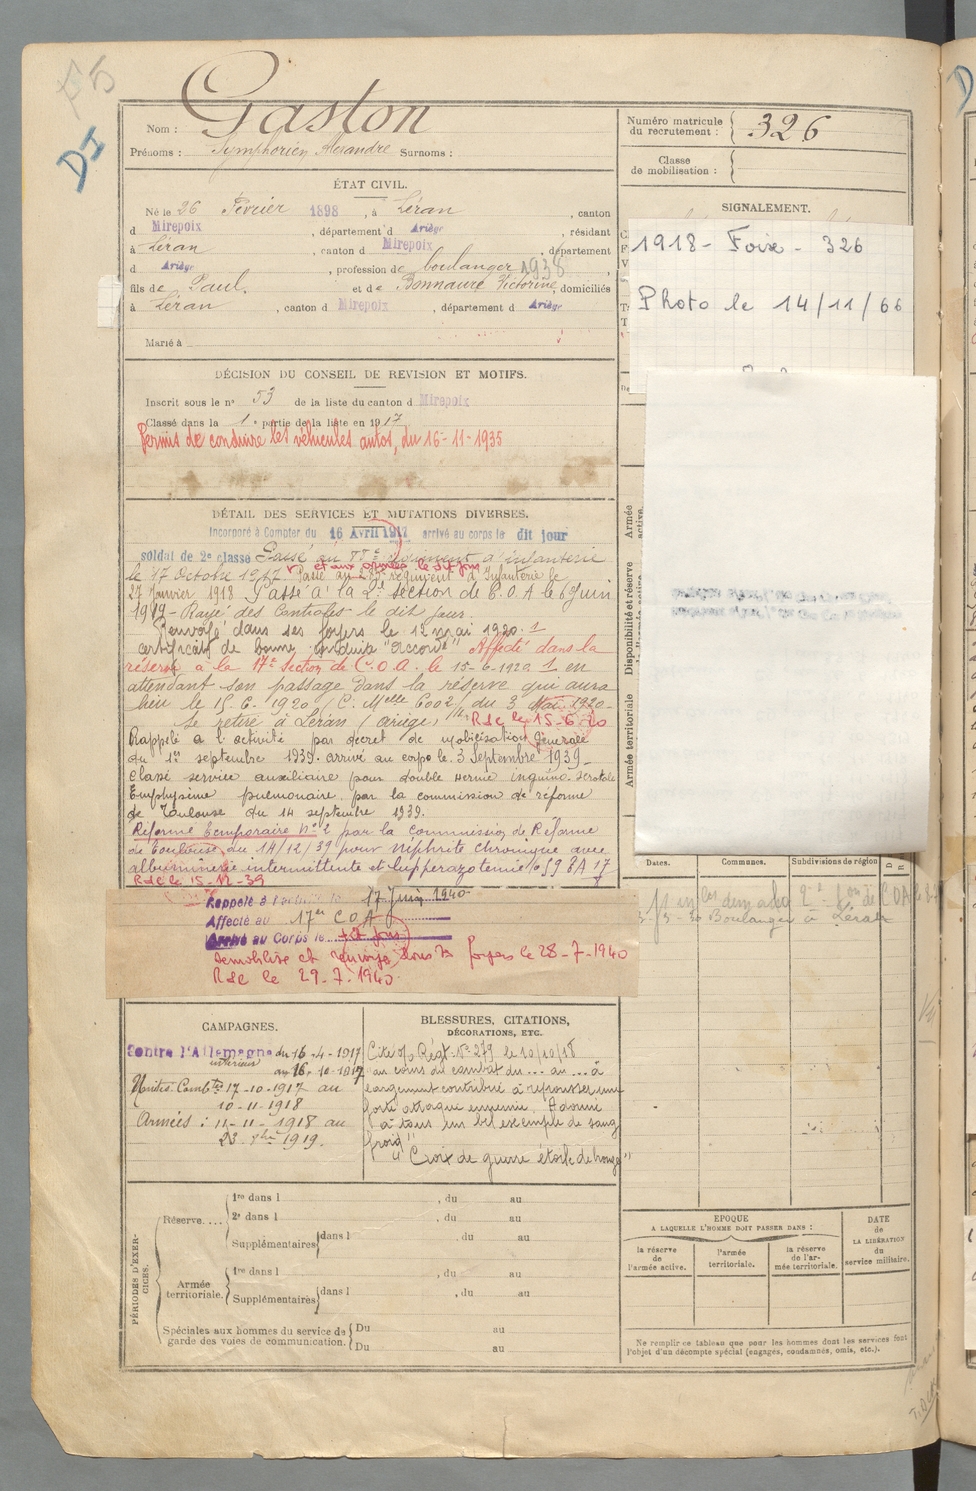 DI
Nom : Gaston
Prénoms : Symphorien Alexandre Surnoms :
Numéro matricule du recrutement : 326
Classe de mobilisation :
ÉTAT CIVIL.
Né le 26 Février 1898, à Léran, canton
d Mirepoix, département d Ariège, résidant
à Léran, canton d Mirepoix, département
d Ariège, profession de boulanger 1938,
fils de Paul. et de Bonnaure Victorine, domiciliés
à Léran, canton d Mirepoix, département d Ariège
Marié à
SIGNALEMENT.
1918 - Foix - 326
Photo le 14/11/66
DÉCISION DU CONSEIL DE REVISION ET MOTIFS.
Inscrit sous le n° 53 de la liste du canton d Mirepoix
Classé dans la 1e partie de la liste en 1917
Permis de conduire les véhicules autos, du 16-11-1935
DÉTAIL DES SERVICES ET MUTATIONS DIVERSES.
Incorporé à Compter du 16 Avril 1917 arrivé au corps le dit jour
soldat de 2e classe Passé au régiment d'infanterie
le 17 Octobre 1917 et aux armées le dit jour Passé au régiment d'Infanterie le
27 Janvier 1918 Passé à la 2e section de C.O.A le 6 Juin
1919 - Rayé des Contrôles le dit jour.
Renvoyé dans ses foyers le 12 mai 1920. 1
certificat de bonne conduite "accordé" Affecté dans la
réserve à la 17e Section de C.O.A. le 15-6-1920 1 en
attendant son passage dans la réserve qui aura
lieu le 15.6.1920 (C. Melle 6002/ du 3 Mai 1920-
Se retire à Léran (ariège) Rdc le 15-6-20
Rappelé à l'activité par décret de mobilisation générale
du 1er septembre 1939. arrivé au corps le 3 Septembre 1939-
Classé service auxiliaire pour double hernie inguino-scrotale
Emphysème pulmonaire par la commission de réforme
de Toulouse du 14 septembre 1939.
Réforme Temporaire N° 2 par la Commission de Réforme
de Toulouse du 14/12/39 pour néphrite chronique avec
albuminurie intermittente et
Rdc le 15-12-39
Rappelé à l'activité le 17 Juin 1940
Affecté au 17e C O A
Arrivé au Corps le dit jour
Démobilisé et renvoyé dans ses foyers le 28-7-1940
Rdc le 29-7-1940.
Armée active.
Disponibilité et réserve
Armée territoriale
Dates. Communes. Subdivisions de région
Boulanger à Léran
CAMPAGNES.
Contre l'Allemagne du 16-4-1917
intérieur au 16-10-1917
Unités Combtes 17-10-1917 au
10-11-1918
Armées : 11-11-1918 au
23 1919.
BLESSURES, CITATIONS,
DÉCORATIONS, ETC.
Cité o/ Régt N° 279 le 10/10/18
"au cours du combat du ... au ... a
largement contribué à repousser une
forte attaque ennemie. A donné
à tous un bel exemple de sang
froid"
"Croix de guerre étoile de bronze"
PÉRIODES D'EXERCICES.
Réserve.... 1re dans l , du au
2e dans l , du au
Supplémentaires dans l , du au
Armée territoriale. 1re dans l , du au
Supplémentaires dans l , du au
Spéciales aux hommes du service de garde des voies de communication. Du au
Du au
EPOQUE
A LAQUELLE L'HOMME DOIT PASSER DANS :
la réserve de l'armée active.
l'armée territoriale.
la réserve de l'armée territoriale.
DATE de LA LIBÉRATION du service militaire.
Ne remplir ce tableau que pour les hommes dont les services font
l'objet d'un décompte spécial (engagés, condamnés, omis, etc.).